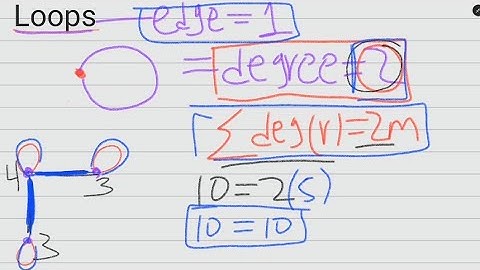 Loops edge = 1
= degree = 2
∑ deg(v) = 2m
10 = 2(5)
10 = 10
4
3
3